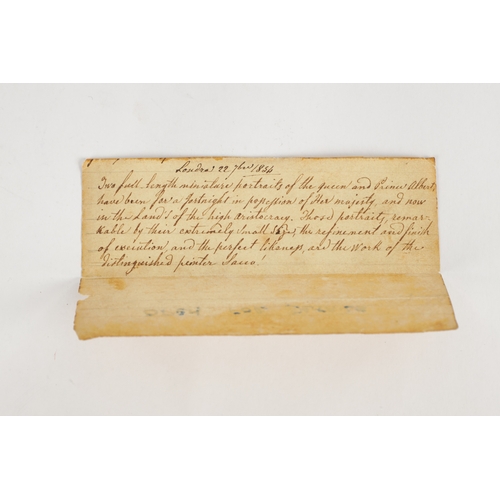 Londra 22 7bre 1854
Two full length miniature portraits of the queen and Prince Albert
have been for a fortnight in possession of Her majesty and now
in the Land's of the high aristocracy. Those portraits, remar-
kable by their extremely small size, the refinement and finish
of execution, and the perfect likeness, are the work of the
distinguished peinter Sacco!